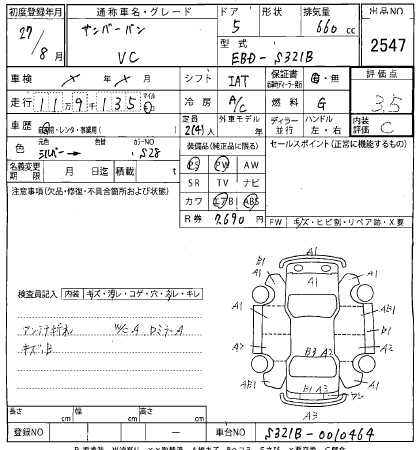 初度登録年月 通称車名・グレード ドア 形状 排気量 出品NO
27/8月 サンバーバン 5 660cc 2547
VC 型式 EBD-S321B
車検 × 年 × 月 シフト IAT 保証書 有・無 評価点
走行 11万9千135 マイル km 冷房 A/C 燃料 G 3.5
車歴 自家用・レンタ・事業用( ) 定員 2(4)人 外車モデル 年 ディーラー 並行 ハンドル 左・右 内装評価 C
色 元色 シルバー → 色替 カラーNO S28 装備品(純正品に限る) セールスポイント(正常に機能するもの)
名義変更期限 月 日迄 積載 t PS PW AW
注意事項(欠品・修復・不具合箇所および状態) SR TV ナビ
カワ エアB ABS
R券 7690円 FW キズ・ヒビ割・リペア跡・X要
A1
B1 A1 A1
A2 A2
B3 A2
AB1 AB1
B1 A3
A3
検査員記入 内装 キズ・汚レ・コゲ・穴・スレ・キレ
アンテナ折れ W/C A Dミラー A
キズ凹
長さ cm 幅 cm 高さ cm
登録NO ― 車台NO S321B-0010464